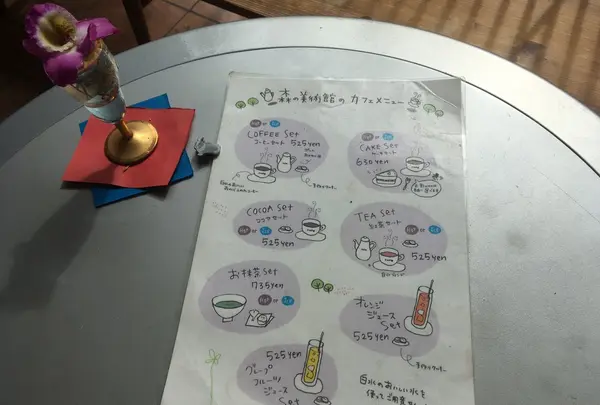 森の美術館の カフェメニュー
Hot or Ice
COFFEE Set
コーヒーセット 525yen
Hot or Ice
CAKE Set
ケーキセット
630yen
COCOA Set
ココアセット
Hot or Ice
525yen
TEA Set
紅茶セット
Hot or Ice
525yen
お抹茶Set
735yen
Hot or Ice
オレンジ
ジュース
Set
525yen
525yen
グレープ
フルーツ
ジュース
Set
白水のおいしい水を
使って